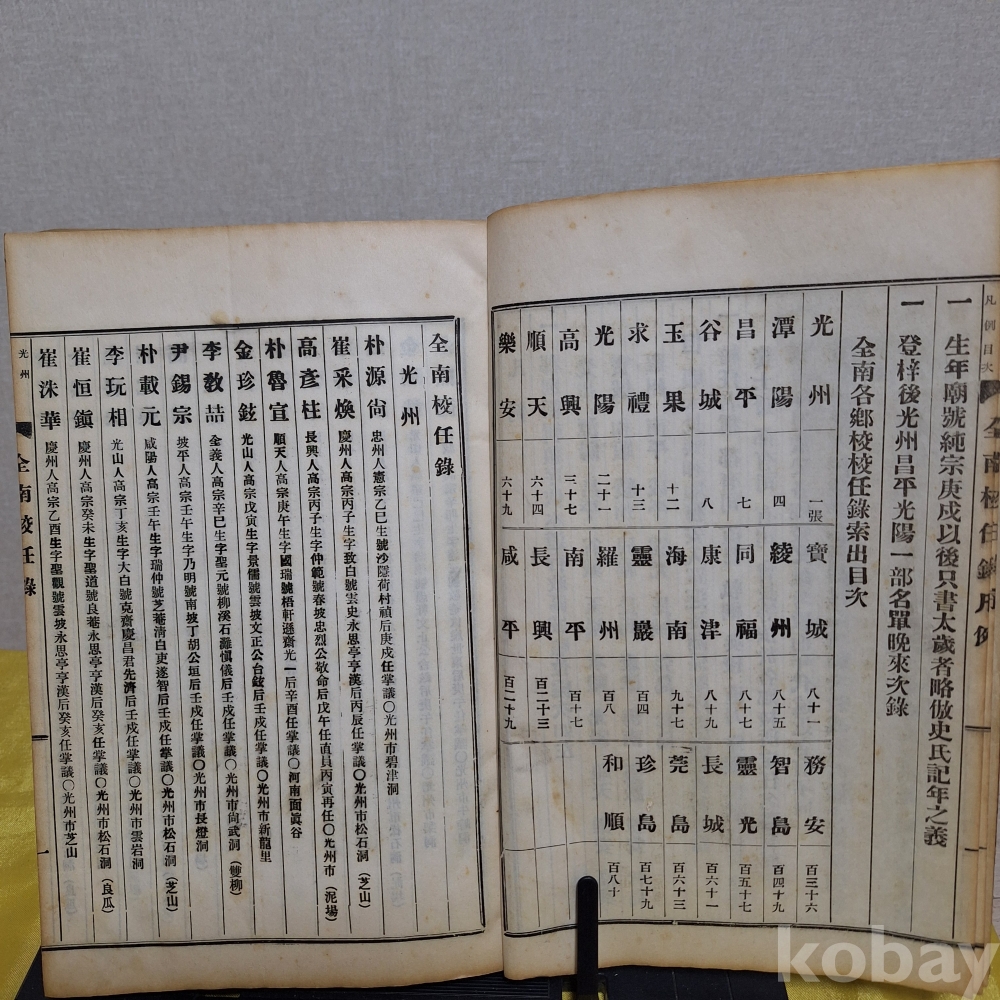 凡例目次
全南校任錄凡例
一 生年廟號純宗庚戌以後只書太歲者略倣史氏記年之義
一 登梓後光州昌平光陽一部名單晚來次錄
全南各鄉校校任錄索出目次
光州 一張 寶城 八十一 務安 百三十六
潭陽 四 綾州 八十五 智島 百四十九
昌平 七 同福 八十七 靈光 百五十七
谷城 八 康津 八十九 長城 百六十一
玉果 十二 海南 九十七 莞島 百六十三
求禮 十三 靈巖 百四 珍島 百七十九
光陽 二十一 羅州 百八 和順 百八十
高興 三十七 南平 百十七
順天 六十四 長興 百二十三
樂安 六十九 咸平 百二十九
全南校任錄
光州
朴源尙 忠州人憲宗乙巳生號沙隱荷村禎后庚戌任掌議〇光州市碧津洞
崔采煥 慶州人高宗丙子生字致白號雲史永思亭亨漢后丙辰任掌議〇光州市松石洞(芝山)
高彥柱 長興人高宗丙子生字仲範號春坡忠烈公敬命后戊午任直員丙寅再任〇光州市(泥場)
朴魯宣 順天人高宗庚午生字國瑞號梧軒遜齋光一后辛酉任掌議〇河南面眞谷
金珍鉉 光山人高宗戊寅生字景儒號雲坡文正公台鉉后壬戌任掌議〇光州市新龍里
李敎喆 全義人高宗辛巳生字聖元號柳溪石灘愼儀后壬戌任掌議〇光州市尙武洞(雙柳)
尹錫宗 坡平人高宗壬午生字乃明號南坡丁胡公垣后壬戌任掌議〇光州市長燈洞
朴載元 咸陽人高宗壬午生字瑞仲號芝菴淸白吏遂智后壬戌任掌議〇光州市松石洞(芝山)
李玩相 光山人高宗丁亥生字大白號克齋慶昌君先濟后壬戌任掌議〇光州市雲岩洞
崔恒鎭 慶州人高宗癸未生字聖道號良菴永思亭亨漢后癸亥任掌議〇光州市松石洞(良瓜)
崔洙華 慶州人高宗乙酉生字聖觀號雲坡永思亭亨漢后癸亥任掌議〇光州市芝山
光州
全南校任錄
一
kobay